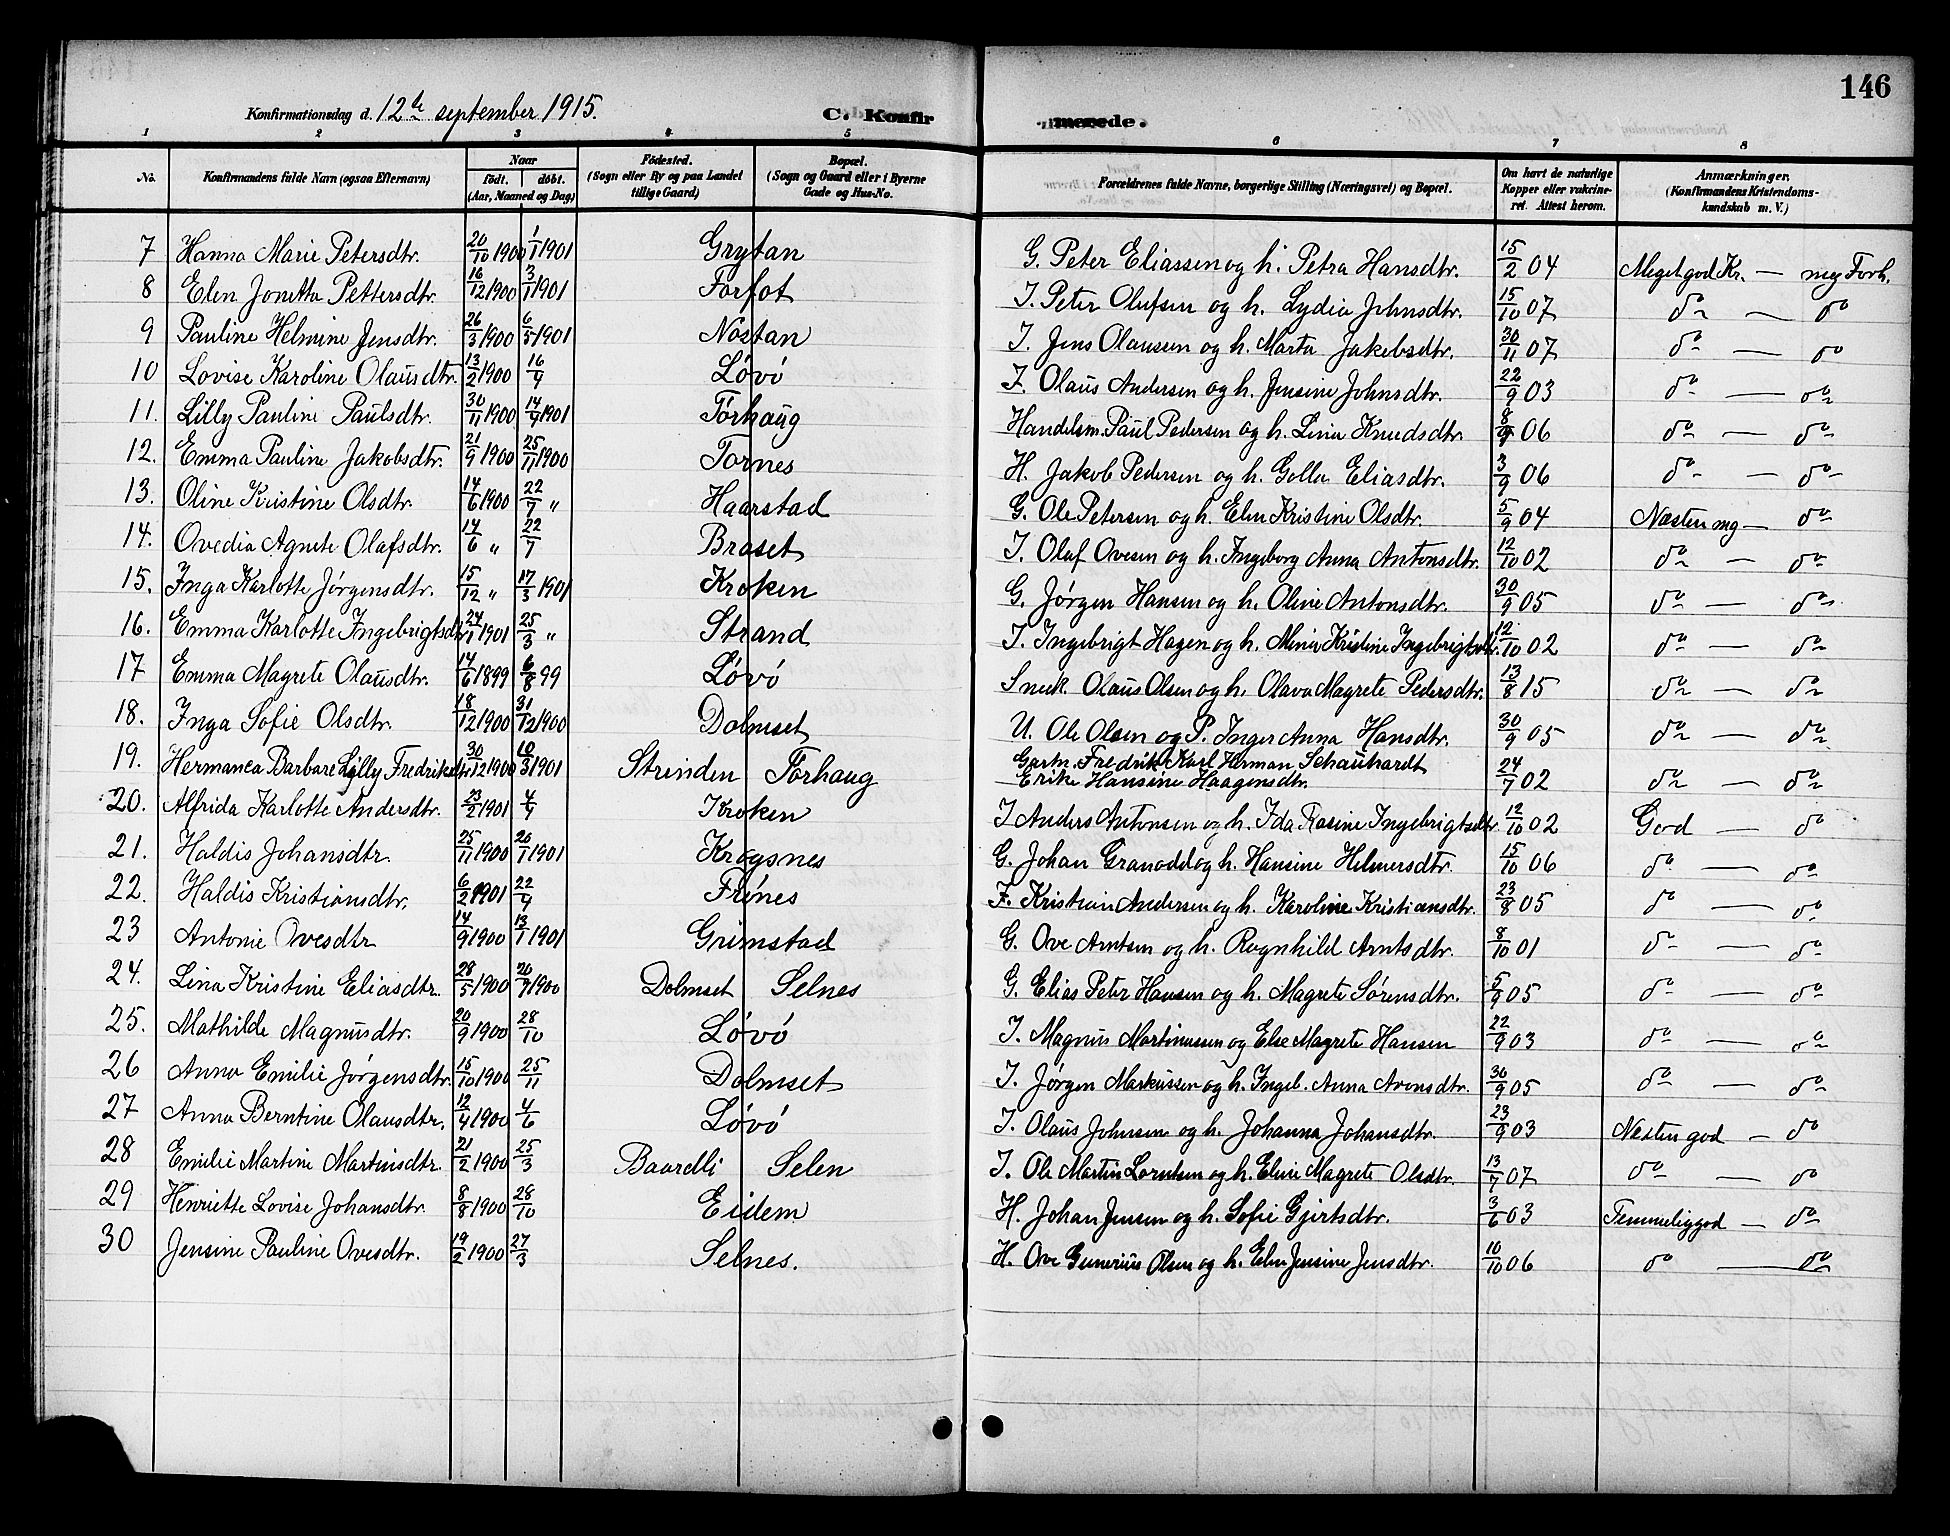 146
Konfirmationsdag d. 12te september 1915.
C. Konfirmerede.
1 2 3 4 5 6 7 8
No. Konfirmandens fulde Navn (ogsaa Efternavn) Naar født. døbt. (Aar, Maaned og Dag) Fødested. (Sogn eller By og paa Landet tillige Gaard) Bopæl. (Sogn og Gaard eller i Byerne Gade og Hus-No. Forældrenes fulde Navne, borgerlige Stilling (Næringsvei) og Bopæl. Om havt de naturlige Kopper eller vakcineret. Attest herom. Anmærkninger. (Konfirmandens Kristendomskundskab m. V.)
7 Hanna Marie Petersdtr. 20/10 1900 1/1 1901 Grytan G. Peter Eliassen og h. Petra Hansdtr. 15/2 04 Meget god Kr. — meg Forh.
8 Elen Jonetta Pettersdtr. 16/12 1900 3/11 1901 Forfot I. Peter Olufsen og h. Lydia Johnsdtr. 15/10 07 do — do
9 Pauline Helmine Jensdtr. 26/3 1900 6/5 1901 Nöstan I. Jens Olausen og h. Marta Jakobsdtr. 30/11 07 do — do
10 Lovise Karoline Olausdtr. 13/2 1900 16/4 Lövö I. Olaus Andersen og h. Jensine Johnsdtr. 22/9 03 do — do
11. Lilly Pauline Paulsdtr. 30/11 1900 14/4 1901 Torhaug Handelsm. Paul Pedersen og h. Lina Knudsdtr. 8/9 06 do — do
12. Emma Pauline Jakobsdtr. 21/9 1900 25/11 1900 Tornes H. Jakob Pedersen og h. Golla Eliasdtr. 3/9 06 do — do
13. Oline Kristine Olsdtr. 14/6 1900 22/7 " Haarstad G. Ole Petersen og h. Elen Kristine Olsdtr. 5/9 04 Næsten mg — do
14. Ovedia Agnete Olafsdtr. 14/6 " 22/7 Braset I. Olaf Ovesen og h. Ingeborg Anna Antonsdtr. 12/10 02 do — do
15. Inga Karlotte Jørgensdtr. 15/12 " 17/3 1901 Kroken G. Jørgen Hansen og h. Oline Antonsdtr. 30/9 05 do — do
16. Emma Karlotte Ingebrigtsdtr. 24/1 1901 25/3 " Strand I. Ingebrigt Hagen og h. Mina Kristine Ingebrigtsdtr. 12/10 02 do — do
17 Emma Magrete Olausdtr. 14/6 1899 6/8 99 Løvö Snek. Olaus Olsen og h. Olava Magrete Pedersdtr. 13/8 15 do — do
18. Inga Sofie Olsdtr. 18/12 1900 31/12 1900 Dolmset U. Ole Olsen og P. Inger Anna Hansdtr. 30/9 05 do — do
19. Hermanca Barbare Lilly Fredriksdtr. 30/12 1900 10/3 1901 Strinden Torhaug Gartn. Fredrik Karl Herman Schauhardt
Erike Hansine Haagensdtr. 24/7 02 do — do
20. Alfrida Karlotte Andersdtr. 23/2 1901 4/4 Kroken I Anders Antonsen og h. Ida Rasine Ingebrigtsdtr. 12/10 02 God — do
21. Haldis Johansdtr. 25/11 1900 20/1 1901 Krogsnes G. Johan Granodd og h. Hansine Helmersdtr. 15/10 06 do — do
22. Haldis Kristiansdtr. 6/2 1901 22/4 Frönes F. Kristian Andersen og h. Karoline Kristiansdtr. 23/8 05 do — do
23 Antonie Ovesdtr 14/9 1900 13/1 1901 Grimstad G. Ove Arntsen og h. Ragnhild Arntsdtr. 8/10 01 do — do
24. Lina Kristine Eliasdtr. 28/5 1900 26/7 1900 Dolmset Selnes G. Elias Peter Hansen og h. Magrete Sørensdtr. 5/9 05 do — do
25. Mathilde Magnusdtr. 20/9 1900 28/10 Lövö I. Magnus Martinussen og Else Magrete Hansen 22/9 03 do — do
26 Anna Emilie Jørgensdtr. 15/10 1900 25/11 Dolmset I. Jørgen Markussen og h. Ingeb. Anna Aronsdtr. 30/9 05 do — do
27 Anna Berntine Olausdtr. 12/4 1900 4/6 Løvö I. Olaus Johnsen og h. Johanna Johansdtr. 23/9 03 Næsten god — do
28 Emilie Martine Martinsdtr. 21/2 1900 25/3 Baardli Selen I. Ole Martin Lorntsen og h. Eline Magrete Olsdtr. 13/7 07 do — do
29 Henriette Lovise Johansdtr. 8/8 1900 28/10 Eidem H. Johan Jensen og h. Sofie Gjertsdtr. 3/6 03 Temmelig god — do
30 Jensine Pauline Ovesdtr. 19/2 1900 27/3 Selnes. H. Ove Gunerius Olsen og h. Elen Jensine Jensdtr. 10/10 06 do — do